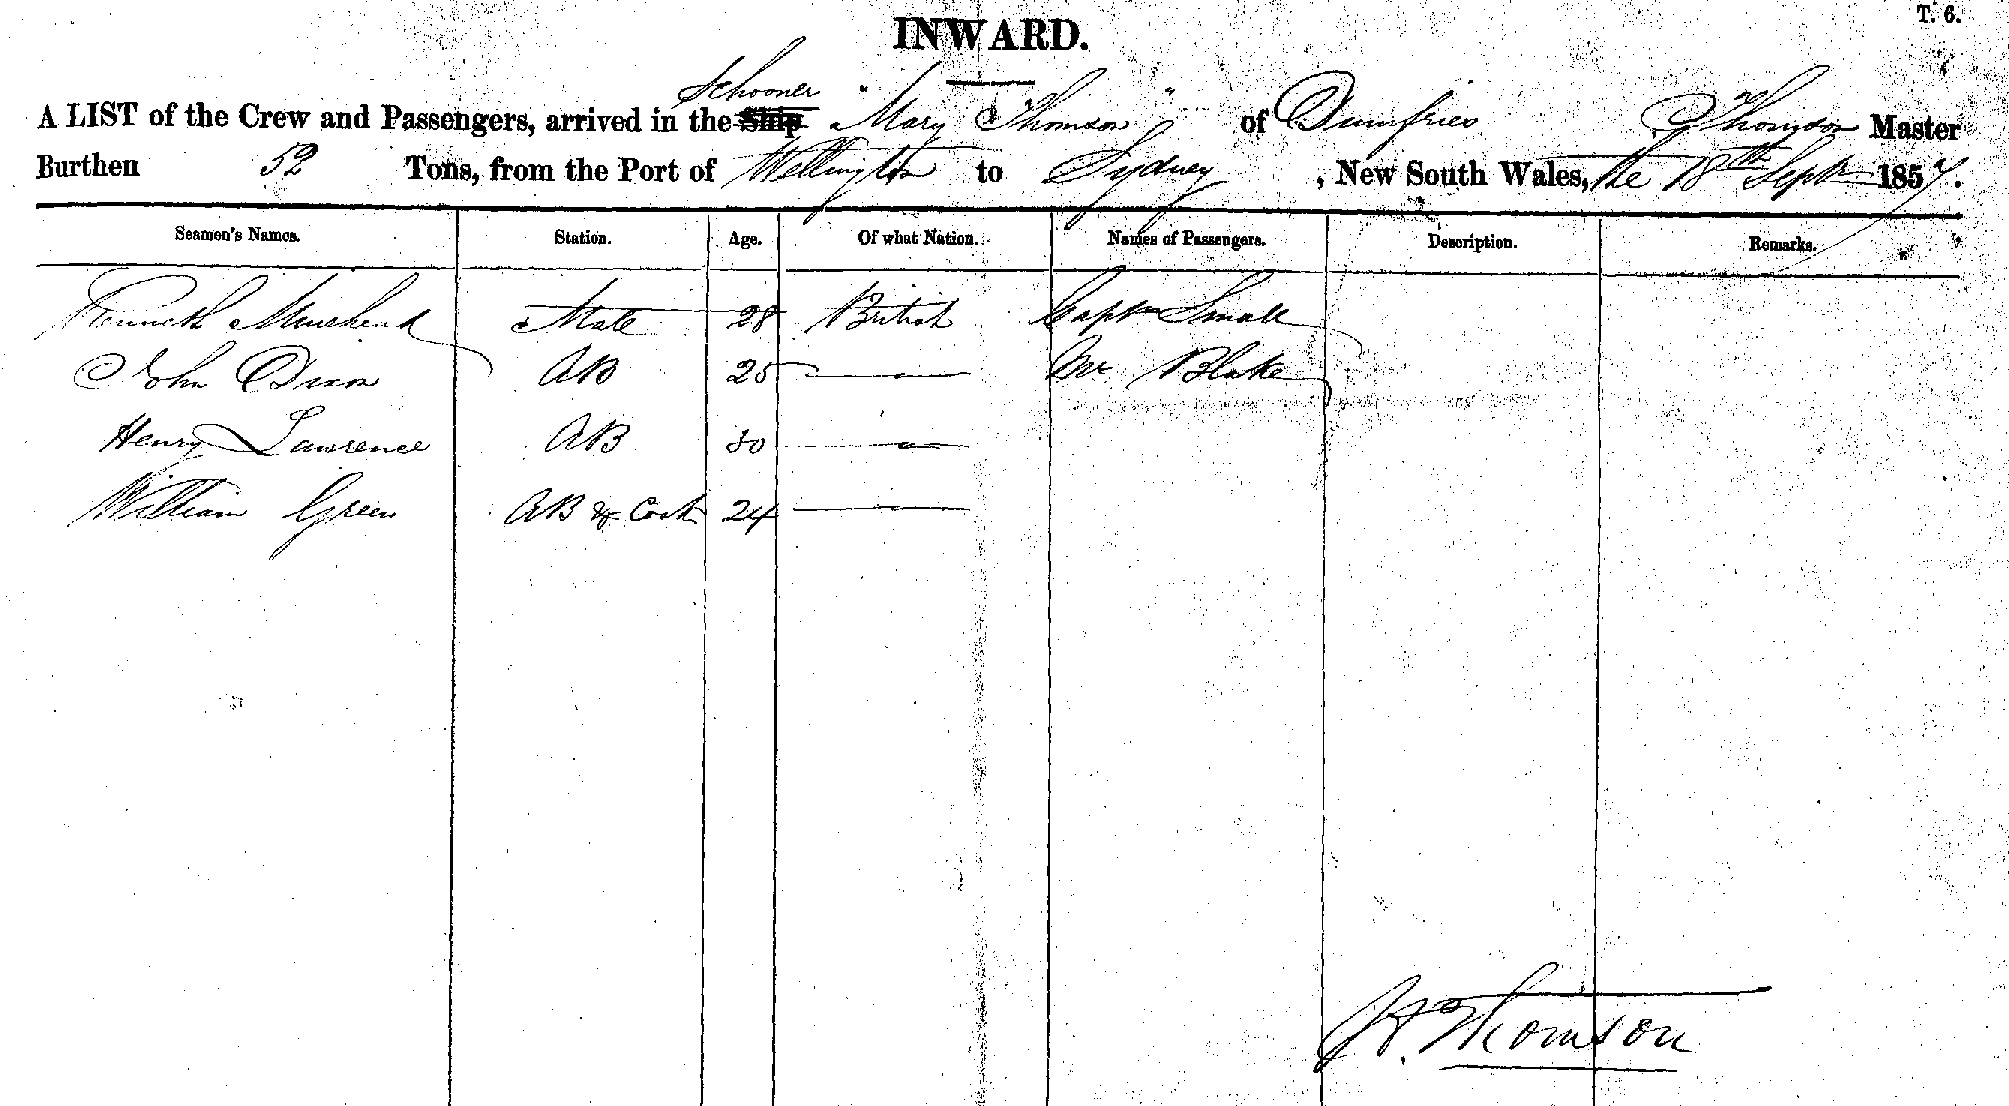 T. 6.
INWARD.
Schooner
A LIST of the Crew and Passengers, arrived in the Ship "Mary Thomson" of Dumfries Thomson Master
Burthen 52 Tons, from the Port of Wellington to Sydney, New South Wales, the 18th Septr 1857.
Seamen's Names. Station. Age. Of what Nation. Names of Passengers. Description. Remarks.
Kenneth Muirhead Mate 28 British Captn Small
John Dixon AB 25 — Mr Blake
Henry Lawrence AB 30 —
William Green AB & Cook 24 —
Thomson